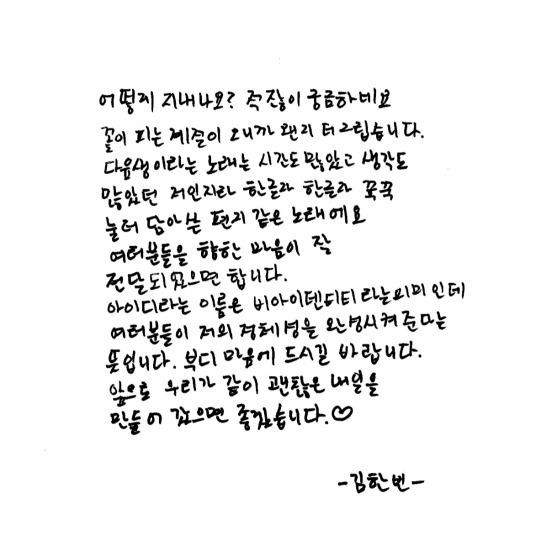 어떻게 지내나요? 굉장히 궁금하네요
꽃이 피는 계절이 오니까 왠지 더 그립습니다.
다음생이라는 노래는 시간도 많았고 생각도
많았던 저인지라 한글자 한글자 꾹꾹
눌러 담아쓴 편지 같은 노래에요
여러분들을 향한 마음이 잘
전달되었으면 합니다.
아이디라는 이름은 비아이덴티티라는 의미인데
여러분들이 저의 정체성을 완성시켜준다는
뜻입니다. 부디 마음에 드시길 바랍니다.
앞으로 우리가 같이 괜찮은 내일을
만들어 갔으면 좋겠습니다.♡
-김한빈-